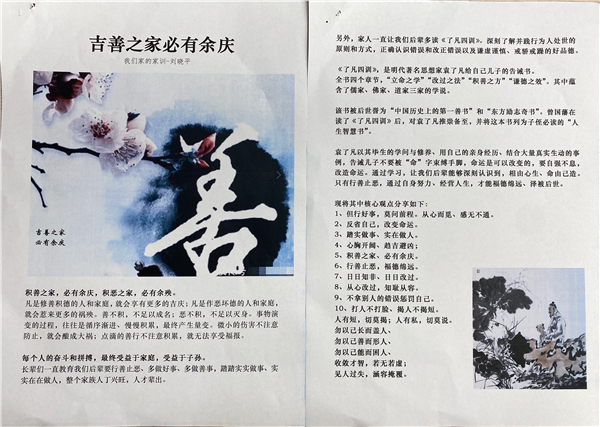 吉善之家必有余庆
我们家的家训-刘晓平
善
吉善之家
必有余庆
积善之家，必有余庆，积恶之家，必有余殃。
凡是修善积德的人和家庭，就会享有更多的吉庆；凡是作恶坏德的人和家庭，
就会惹来更多的祸殃。善不积，不足以成名；恶不积，不足以灭身。事物演
变的过程，往往是循序渐进、慢慢积累，最终产生量变。微小的伤害不注意
防止，就会酿成大祸；点滴的善行不注意积累，就无法享受福报。
每个人的奋斗和拼搏，最终受益于家庭，受益于子孙。
长辈们一直教育我们后辈要行善止恶、多做好事、多做善事，踏踏实实做事、实
实在在做人，整个家族人丁兴旺，人才辈出。
另外，家人一直让我们后辈多读《了凡四训》，深刻了解并践行为人处世的
原则和方式，正确认识错误和改正错误以及谦虚谨慎、戒骄戒躁的好品德。
《了凡四训》，是明代著名思想家袁了凡给自己儿子的告诫书。
全书四个章节，“立命之学”“改过之法”“积善之方”“谦德之效”。其中蕴
含了儒家、佛家、道家三家的学说。
该书被后世誉为“中国历史上的第一善书”和“东方励志奇书”。曾国藩在
读了《了凡四训》后，对袁了凡推崇备至，并将这本书列为子侄必读的“人
生智慧书”。
袁了凡以其毕生的学问与修养、用自己的亲身经历、结合大量真实生动的事
例，告诫儿子不要被“命”字束缚手脚，命运是可以改变的，要自强不息，
改造命运。通过学习，让我们后辈能够深刻认识到，相由心生、命由己造。
只有行善止恶，通过自身努力、经营人生，才能福德绵远、泽被后世。
现将其中核心观点分享如下：
1、但行好事，莫问前程。从心而觅，感无不通。
2、反省自己，改变命运。
3、踏实做事、实在做人。
4、心胸开阔、趋吉避凶；
5、积善之家、必有余庆。
6、行善止恶，福德绵远。
7、日日知非、日日改过。
8、从心改过，知耻从容。
9、不拿别人的错误惩罚自己。
10、打人不打脸、揭人不揭短。
人有短，切莫揭；人有私，切莫说。
勿以己长而盖人、
勿以己善而形人、
勿以己能而困人、
收敛才智，若无若虚；
见人过失，涵容掩覆。